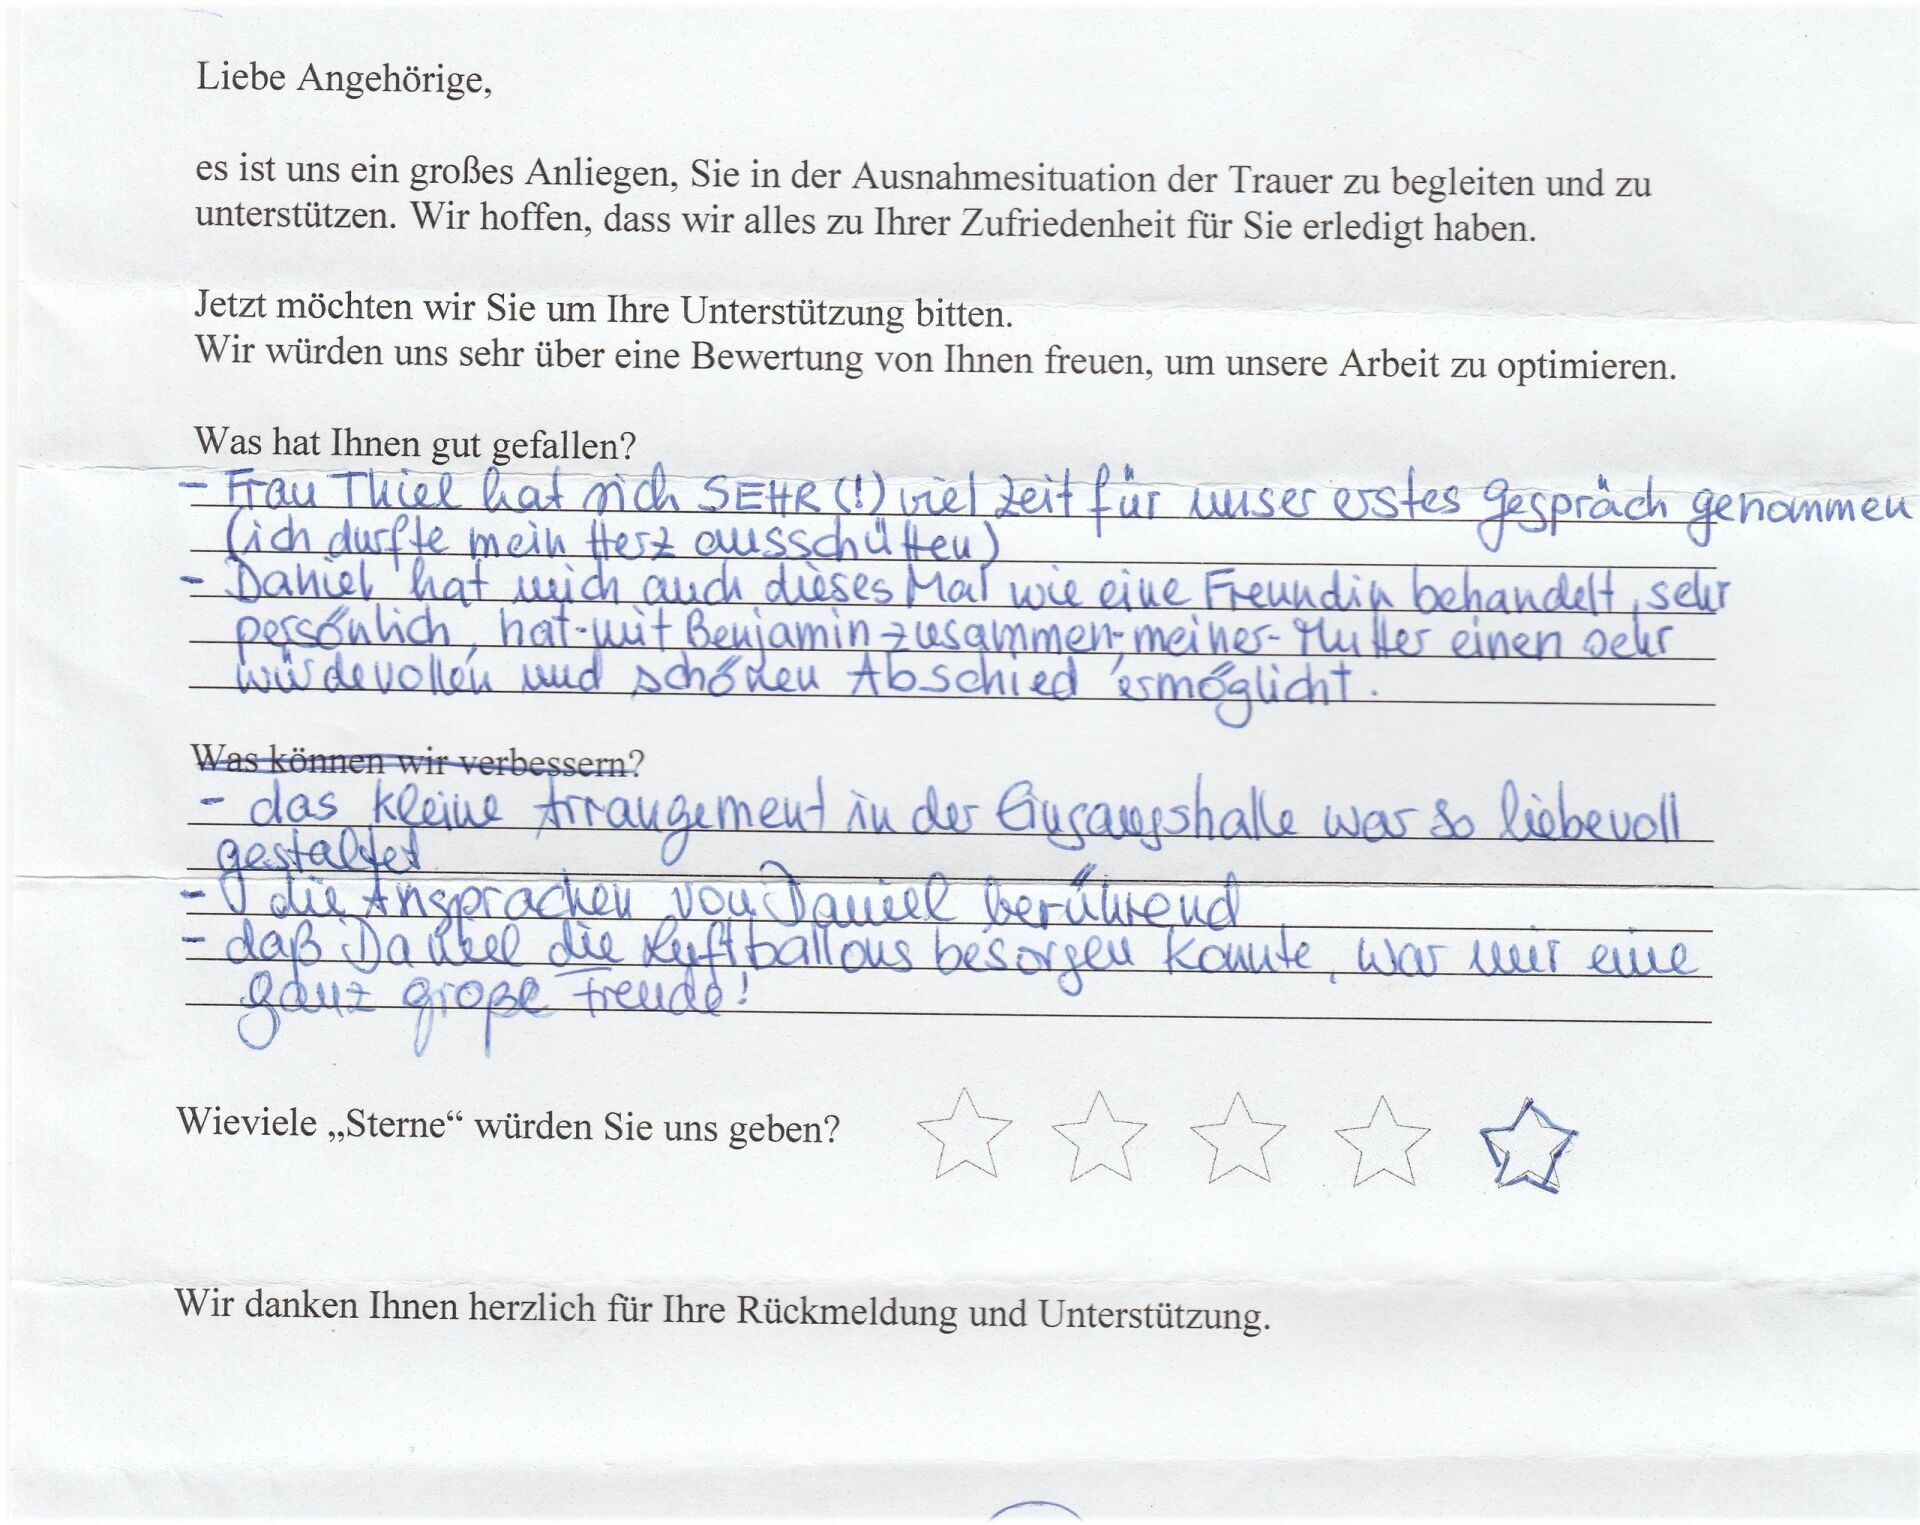 Liebe Angehörige,
es ist uns ein großes Anliegen, Sie in der Ausnahmesituation der Trauer zu begleiten und zu
unterstützen. Wir hoffen, dass wir alles zu Ihrer Zufriedenheit für Sie erledigt haben.
Jetzt möchten wir Sie um Ihre Unterstützung bitten.
Wir würden uns sehr über eine Bewertung von Ihnen freuen, um unsere Arbeit zu optimieren.
Was hat Ihnen gut gefallen?
- Frau Thiel hat sich SEHR (!) viel Zeit für unser erstes Gespräch genommen
(ich durfte mein Herz ausschütten)
- Daniel hat mich auch dieses Mal wie eine Freundin behandelt, sehr
persönlich, hat-mit Benjamin-zusammen-, meiner-Mutter einen sehr
würdevollen und schönen Abschied ermöglicht.
Was können wir verbessern?
- das kleine Arrangement in der Eingangshalle war so liebevoll
gestaltet
- die Ansprachen von Daniel berührend
- daß Daniel die Luftballons besorgen konnte, war mir eine
ganz große Freude!
Wieviele „Sterne“ würden Sie uns geben?
Wir danken Ihnen herzlich für Ihre Rückmeldung und Unterstützung.